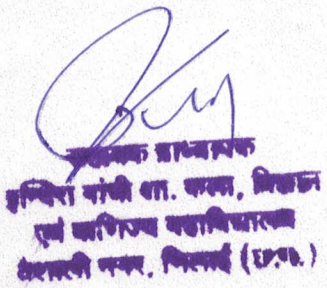 सहायक प्राध्यापक
इन्दिरा गांधी शा. कला, विज्ञान
एवं वाणिज्य महाविद्यालय
वैशाली नगर, भिलाई (छ.ग.)